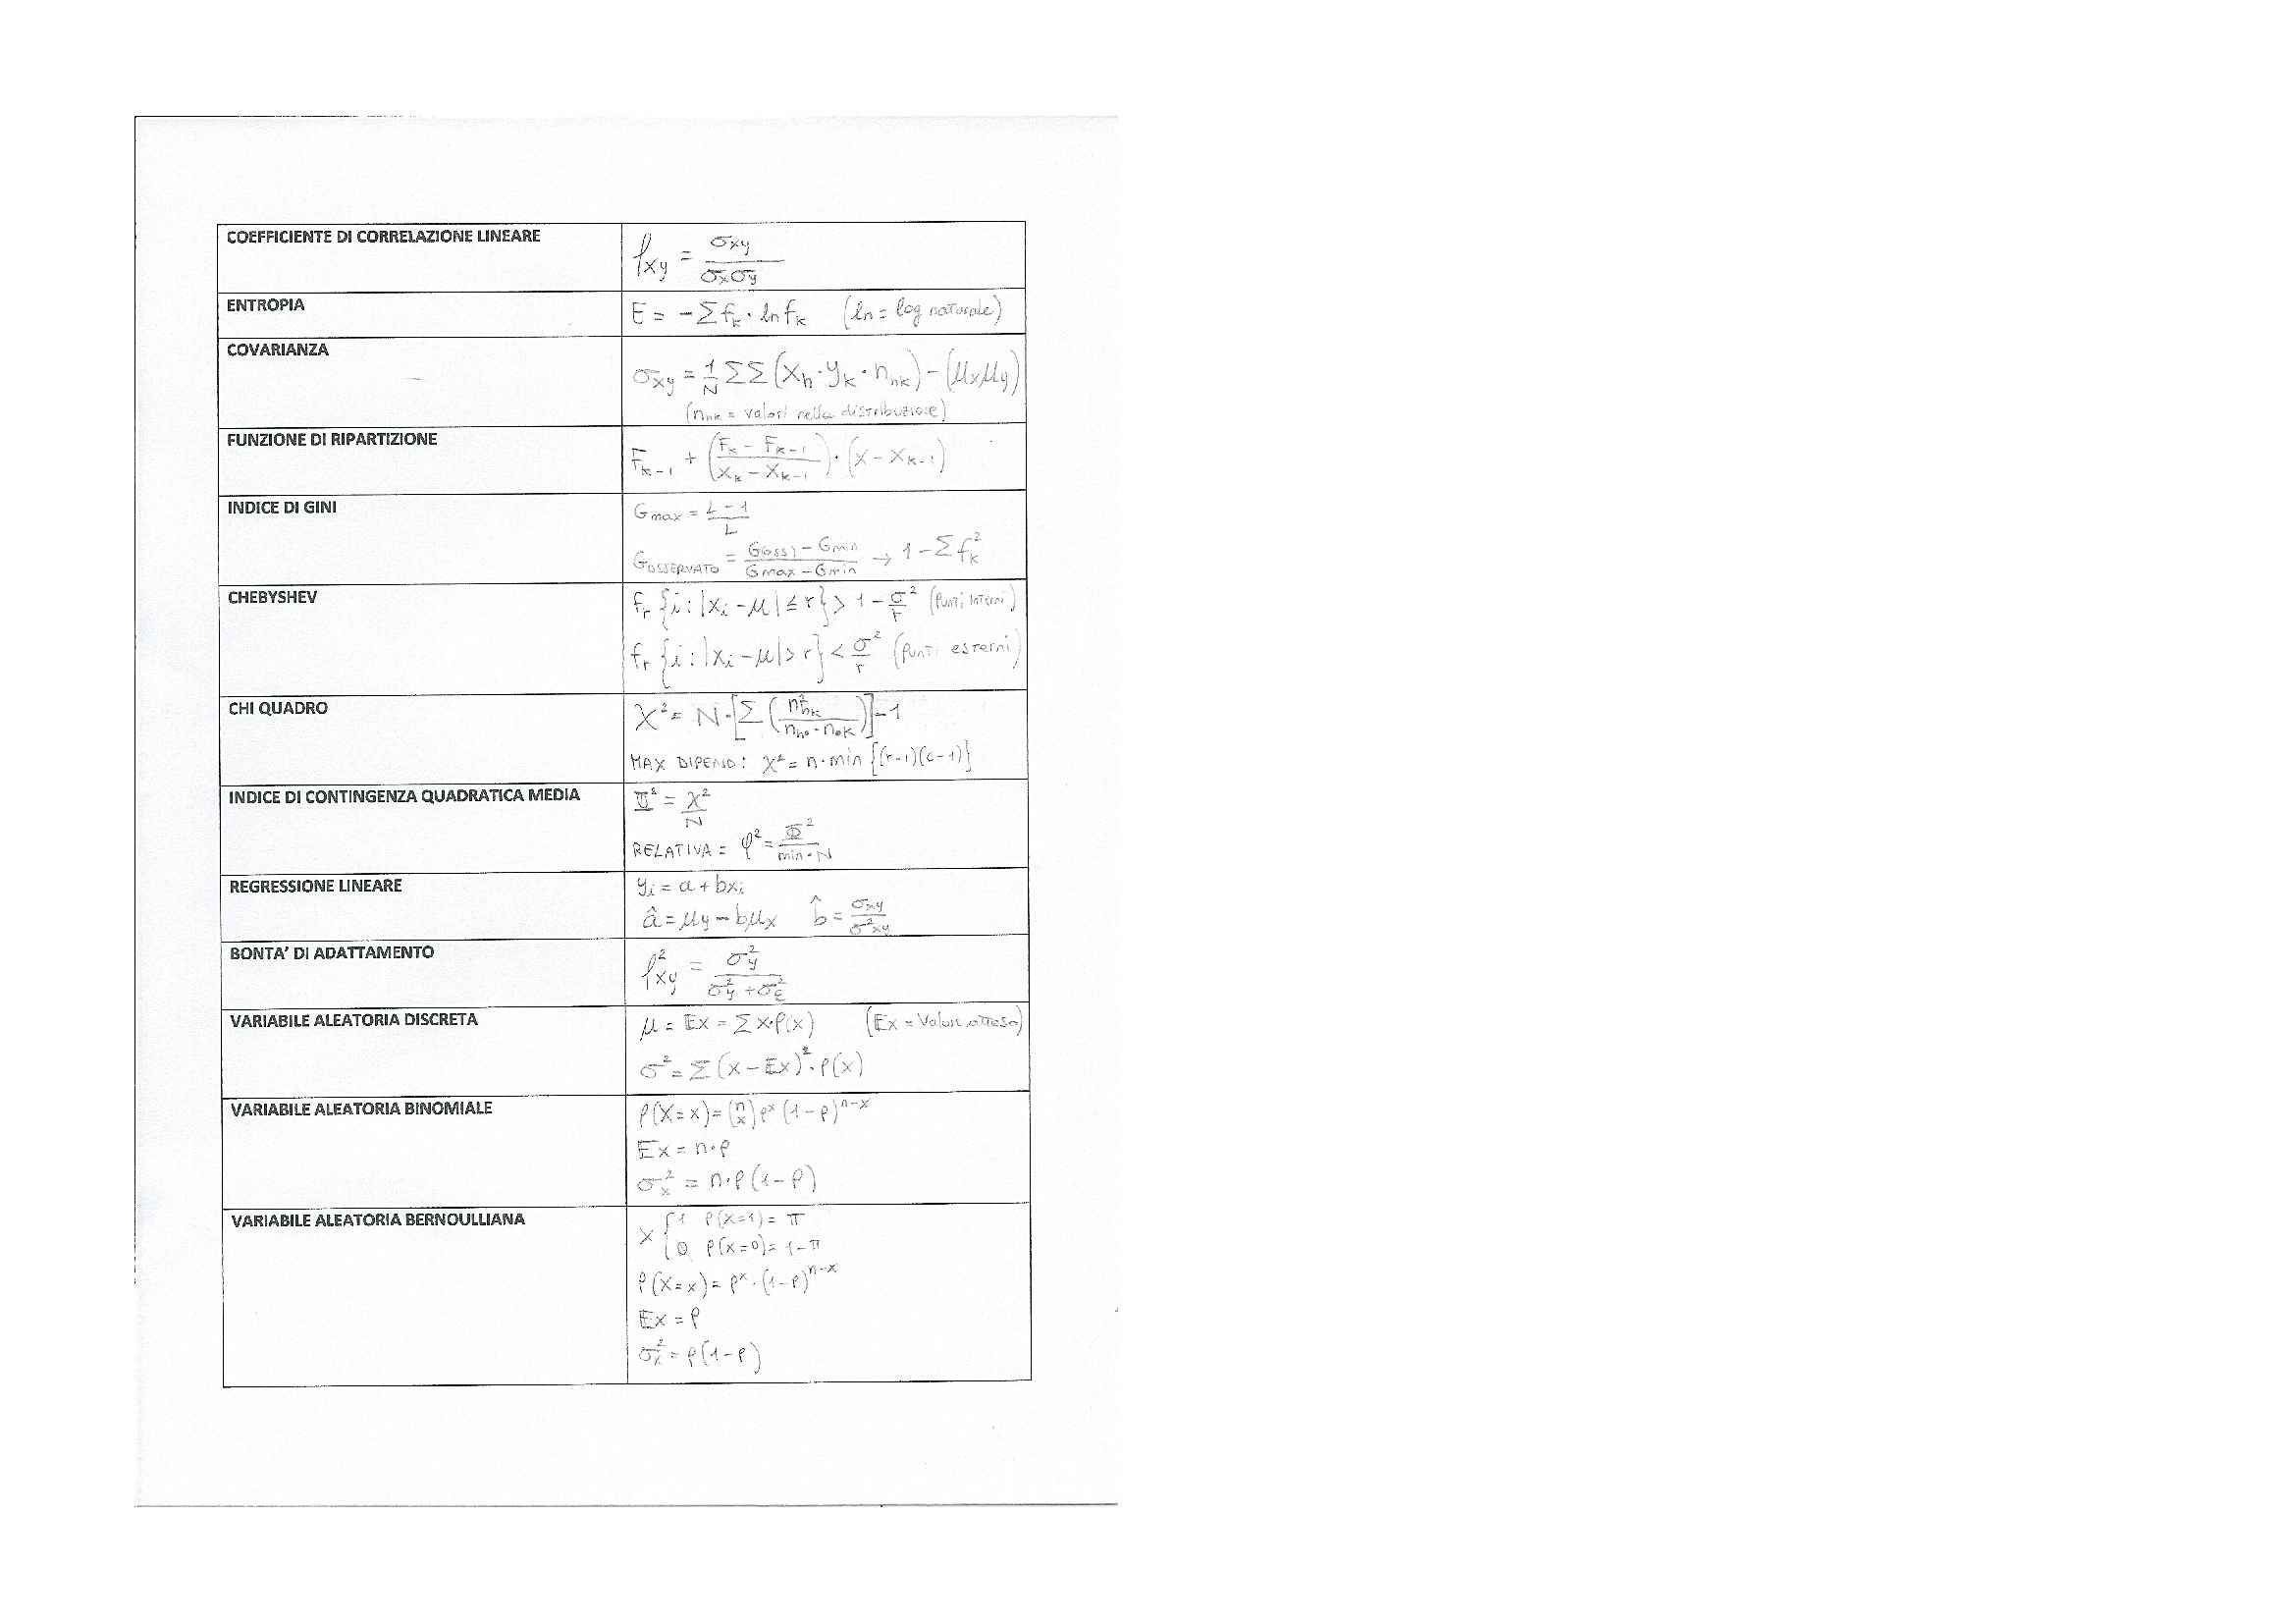 COEFFICIENTE DI CORRELAZIONE LINEARE
ρxy = σxy / σxσy
ENTROPIA
E = -Σ fk · ln fk (ln = log naturale)
COVARIANZA
σxy = 1/N ΣΣ (xh · yk · nhk) - (μxμy)
(nhk = valori nella distribuzione)
FUNZIONE DI RIPARTIZIONE
Fk-1 + (Fk - Fk-1 / xk - xk-1) · (x - xk-1)
INDICE DI GINI
Gmax = L-1 / L
GOSSERVATO = G(oss) - Gmin / Gmax - Gmin → 1 - Σ fk²
CHEBYSHEV
fr {i : |xi - μ| ≤ r} > 1 - σ/r ² (punti interni)
fr {i : |xi - μ| > r} < σ/r ² (punti esterni)
CHI QUADRO
χ² = N · [Σ (n²hk / nh• · n•k)] - 1
MAX DIPEND: χ² = n · min {(r-1)(c-1)}
INDICE DI CONTINGENZA QUADRATICA MEDIA
Φ² = χ² / N
RELATIVA = φ² = Φ² / min · N
REGRESSIONE LINEARE
yi = a + bxi
â = μy - bμx b̂ = σxy / σ²xy
BONTA' DI ADATTAMENTO
ρ²xy = σ²y / σ²y + σ²ε
VARIABILE ALEATORIA DISCRETA
μ = Ex = Σ x·P(x) (Ex = Valore atteso)
σ² = Σ (x - Ex)² · P(x)
VARIABILE ALEATORIA BINOMIALE
P(X=x) = (n x) p^x (1-p)^n-x
Ex = n·p
σ²x = n·p (1-p)
VARIABILE ALEATORIA BERNOULLIANA
X { 1 P(x=1) = π
0 P(x=0) = 1-π
P(X=x) = p^x · (1-p)^n-x
Ex = p
σ²x = p(1-p)